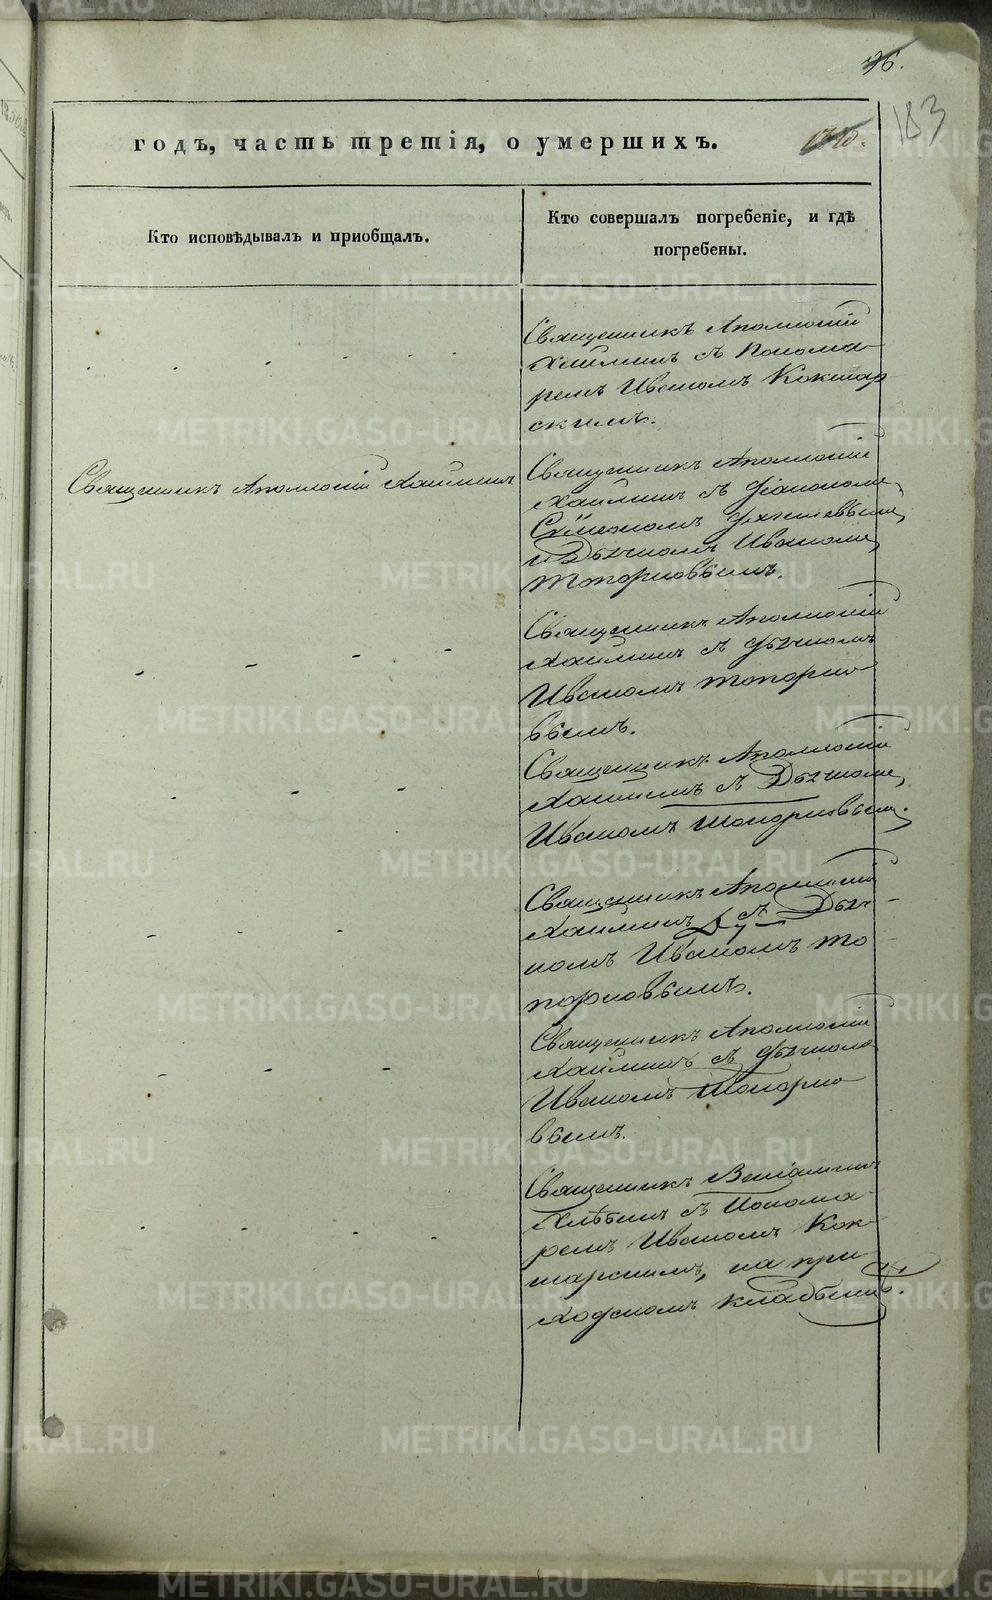 183
годъ, часть третія, о умершихъ.
Кто исповѣдывалъ и приобщалъ.
Кто совершалъ погребеніе, и гдѣ
погребены.
Священникъ Аполлоній
Хаимлинъ съ Понома-
ремъ Иваномъ Кокшар
скимъ.
Священникъ Аполлоній
Священникъ Аполлоній
съ Діакономъ
Сѵмеономъ
и Дьячкомъ Иваномъ
Топорковымъ.
Священникъ Аполлоній
съ дьячкомъ
Иваномъ Топорко-
вымъ.
Священникъ Аполлоній
съ Дьячкомъ
Иваномъ Топорковым.
Священникъ Аполлоній
съ Дьяч-
комъ Иваномъ То
порковымъ.
Священникъ Аполлоній
съ дьячкомъ
Иваномъ Топорко
вымъ.
Священникъ Веніаминъ
Хлѣбинъ съ Понома-
ремъ Иваномъ Кок-
шарскимъ, на при-
ходскомъ кладбищѣ.
METRIKI.GASO-URAL.RU